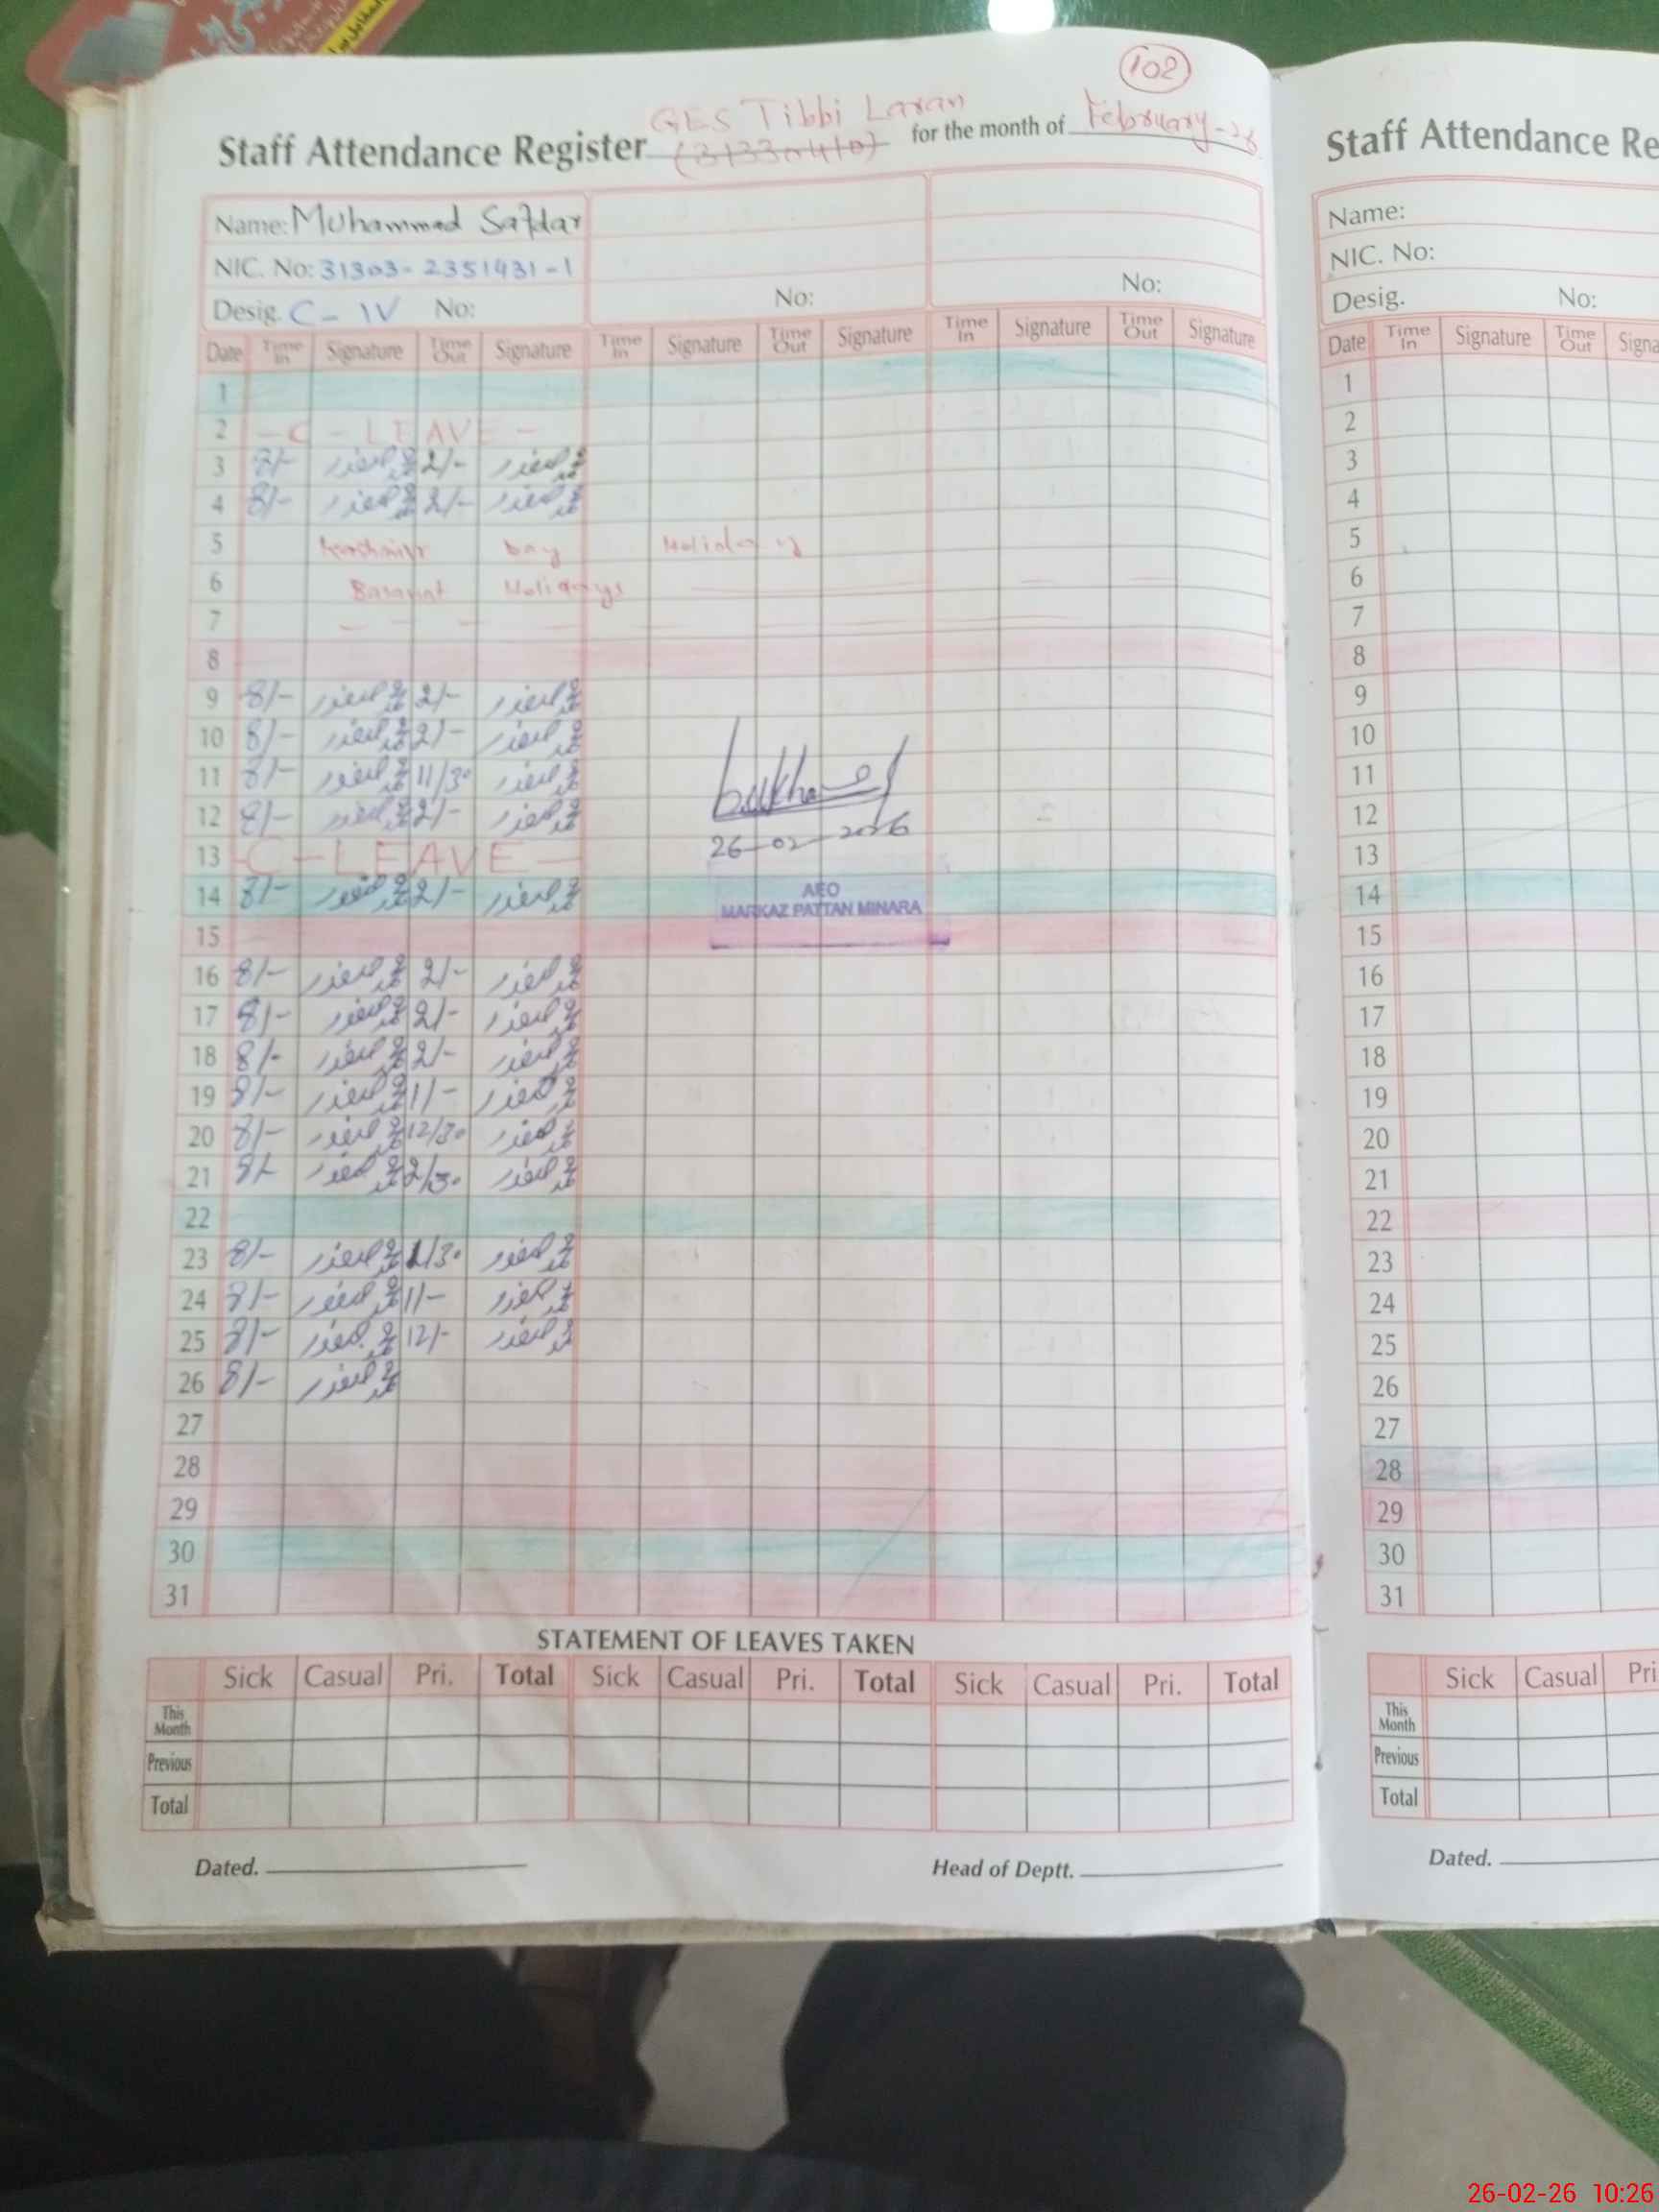 102
GES Tibbi Laran
Staff Attendance Register (31330410) for the month of February-26
Name: Muhammad Safdar
NIC. No: 31303-2351931-1
Desig. C-IV No: No: No:
Date Time In Signature Time Out Signature Time In Signature Time Out Signature Time In Signature Time Out Signature
1
2 -C-LEAVE-
3 8/- محمد صفدر 2/- محمد صفدر
4 8/- محمد صفدر 2/- محمد صفدر
5 Kashmir Day Holiday
6 Basant Holidays
7
8
9 8/- محمد صفدر 2/- محمد صفدر
10 8/- محمد صفدر 2/- محمد صفدر
11 8/- محمد صفدر 11/30 محمد صفدر
12 8/- محمد صفدر 2/- محمد صفدر
26-02-2026
13 -C-LEAVE-
14 8/- محمد صفدر 2/- محمد صفدر
AEO
MARKAZ PATTAN MINARA
15
16 8/- محمد صفدر 2/- محمد صفدر
17 8/- محمد صفدر 2/- محمد صفدر
18 8/- محمد صفدر 2/- محمد صفدر
19 8/- محمد صفدر 11/- محمد صفدر
20 8/- محمد صفدر 12/30 محمد صفدر
21 8/- محمد صفدر 2/30 محمد صفدر
22
23 8/- محمد صفدر 1/30 محمد صفدر
24 8/- محمد صفدر 11/- محمد صفدر
25 8/- محمد صفدر 12/- محمد صفدر
26 8/- محمد صفدر
27
28
29
30
31
STATEMENT OF LEAVES TAKEN
Sick Casual Pri. Total Sick Casual Pri. Total Sick Casual Pri. Total
This Month
Previous
Total
Dated. Head of Deptt.
Staff Attendance Re
Name:
NIC. No:
Desig. No:
Date Time In Signature Time Out Signa
1
2
3
4
5
6
7
8
9
10
11
12
13
14
15
16
17
18
19
20
21
22
23
24
25
26
27
28
29
30
31
Sick Casual Pri
This Month
Previous
Total
Dated.
26-02-26 10:26